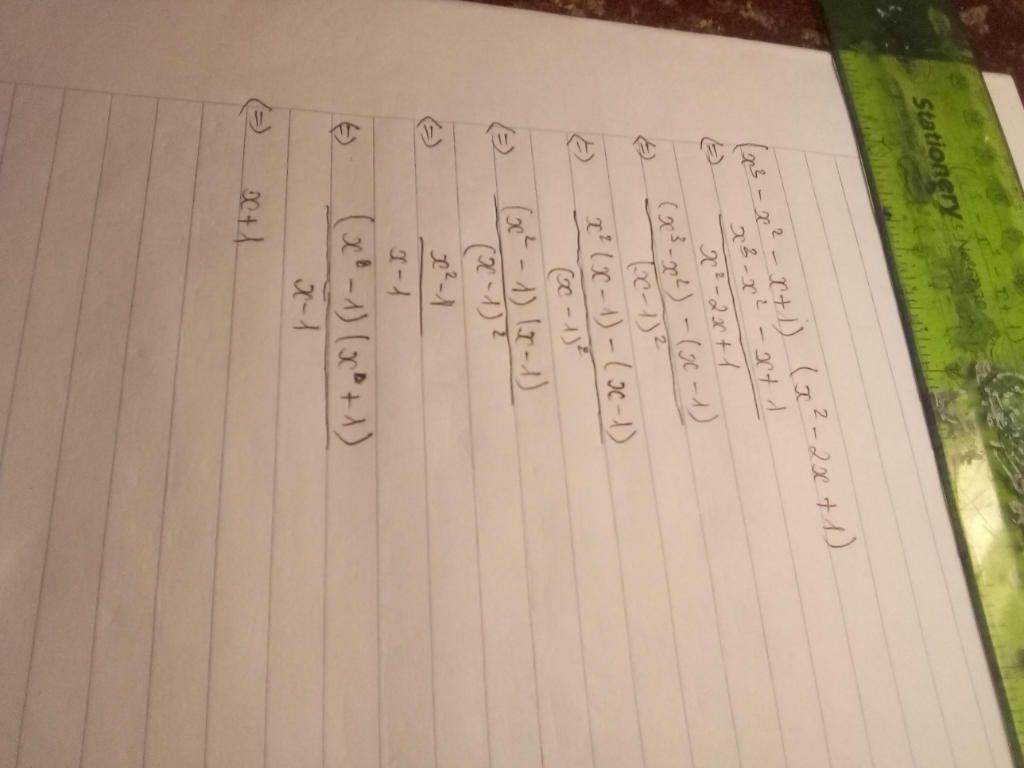 (x³ - x² - x + 1) (x² - 2x + 1)
(=) x³ - x² - x + 1 / x² - 2x + 1
(=) (x³ - x²) - (x - 1) / (x - 1)²
(=) x² (x - 1) - (x - 1) / (x - 1)²
(=) (x² - 1) (x - 1) / (x - 1)²
(=) x² - 1 / x - 1
(=) (x - 1) (x + 1) / x - 1
(=) x + 1
Stationery